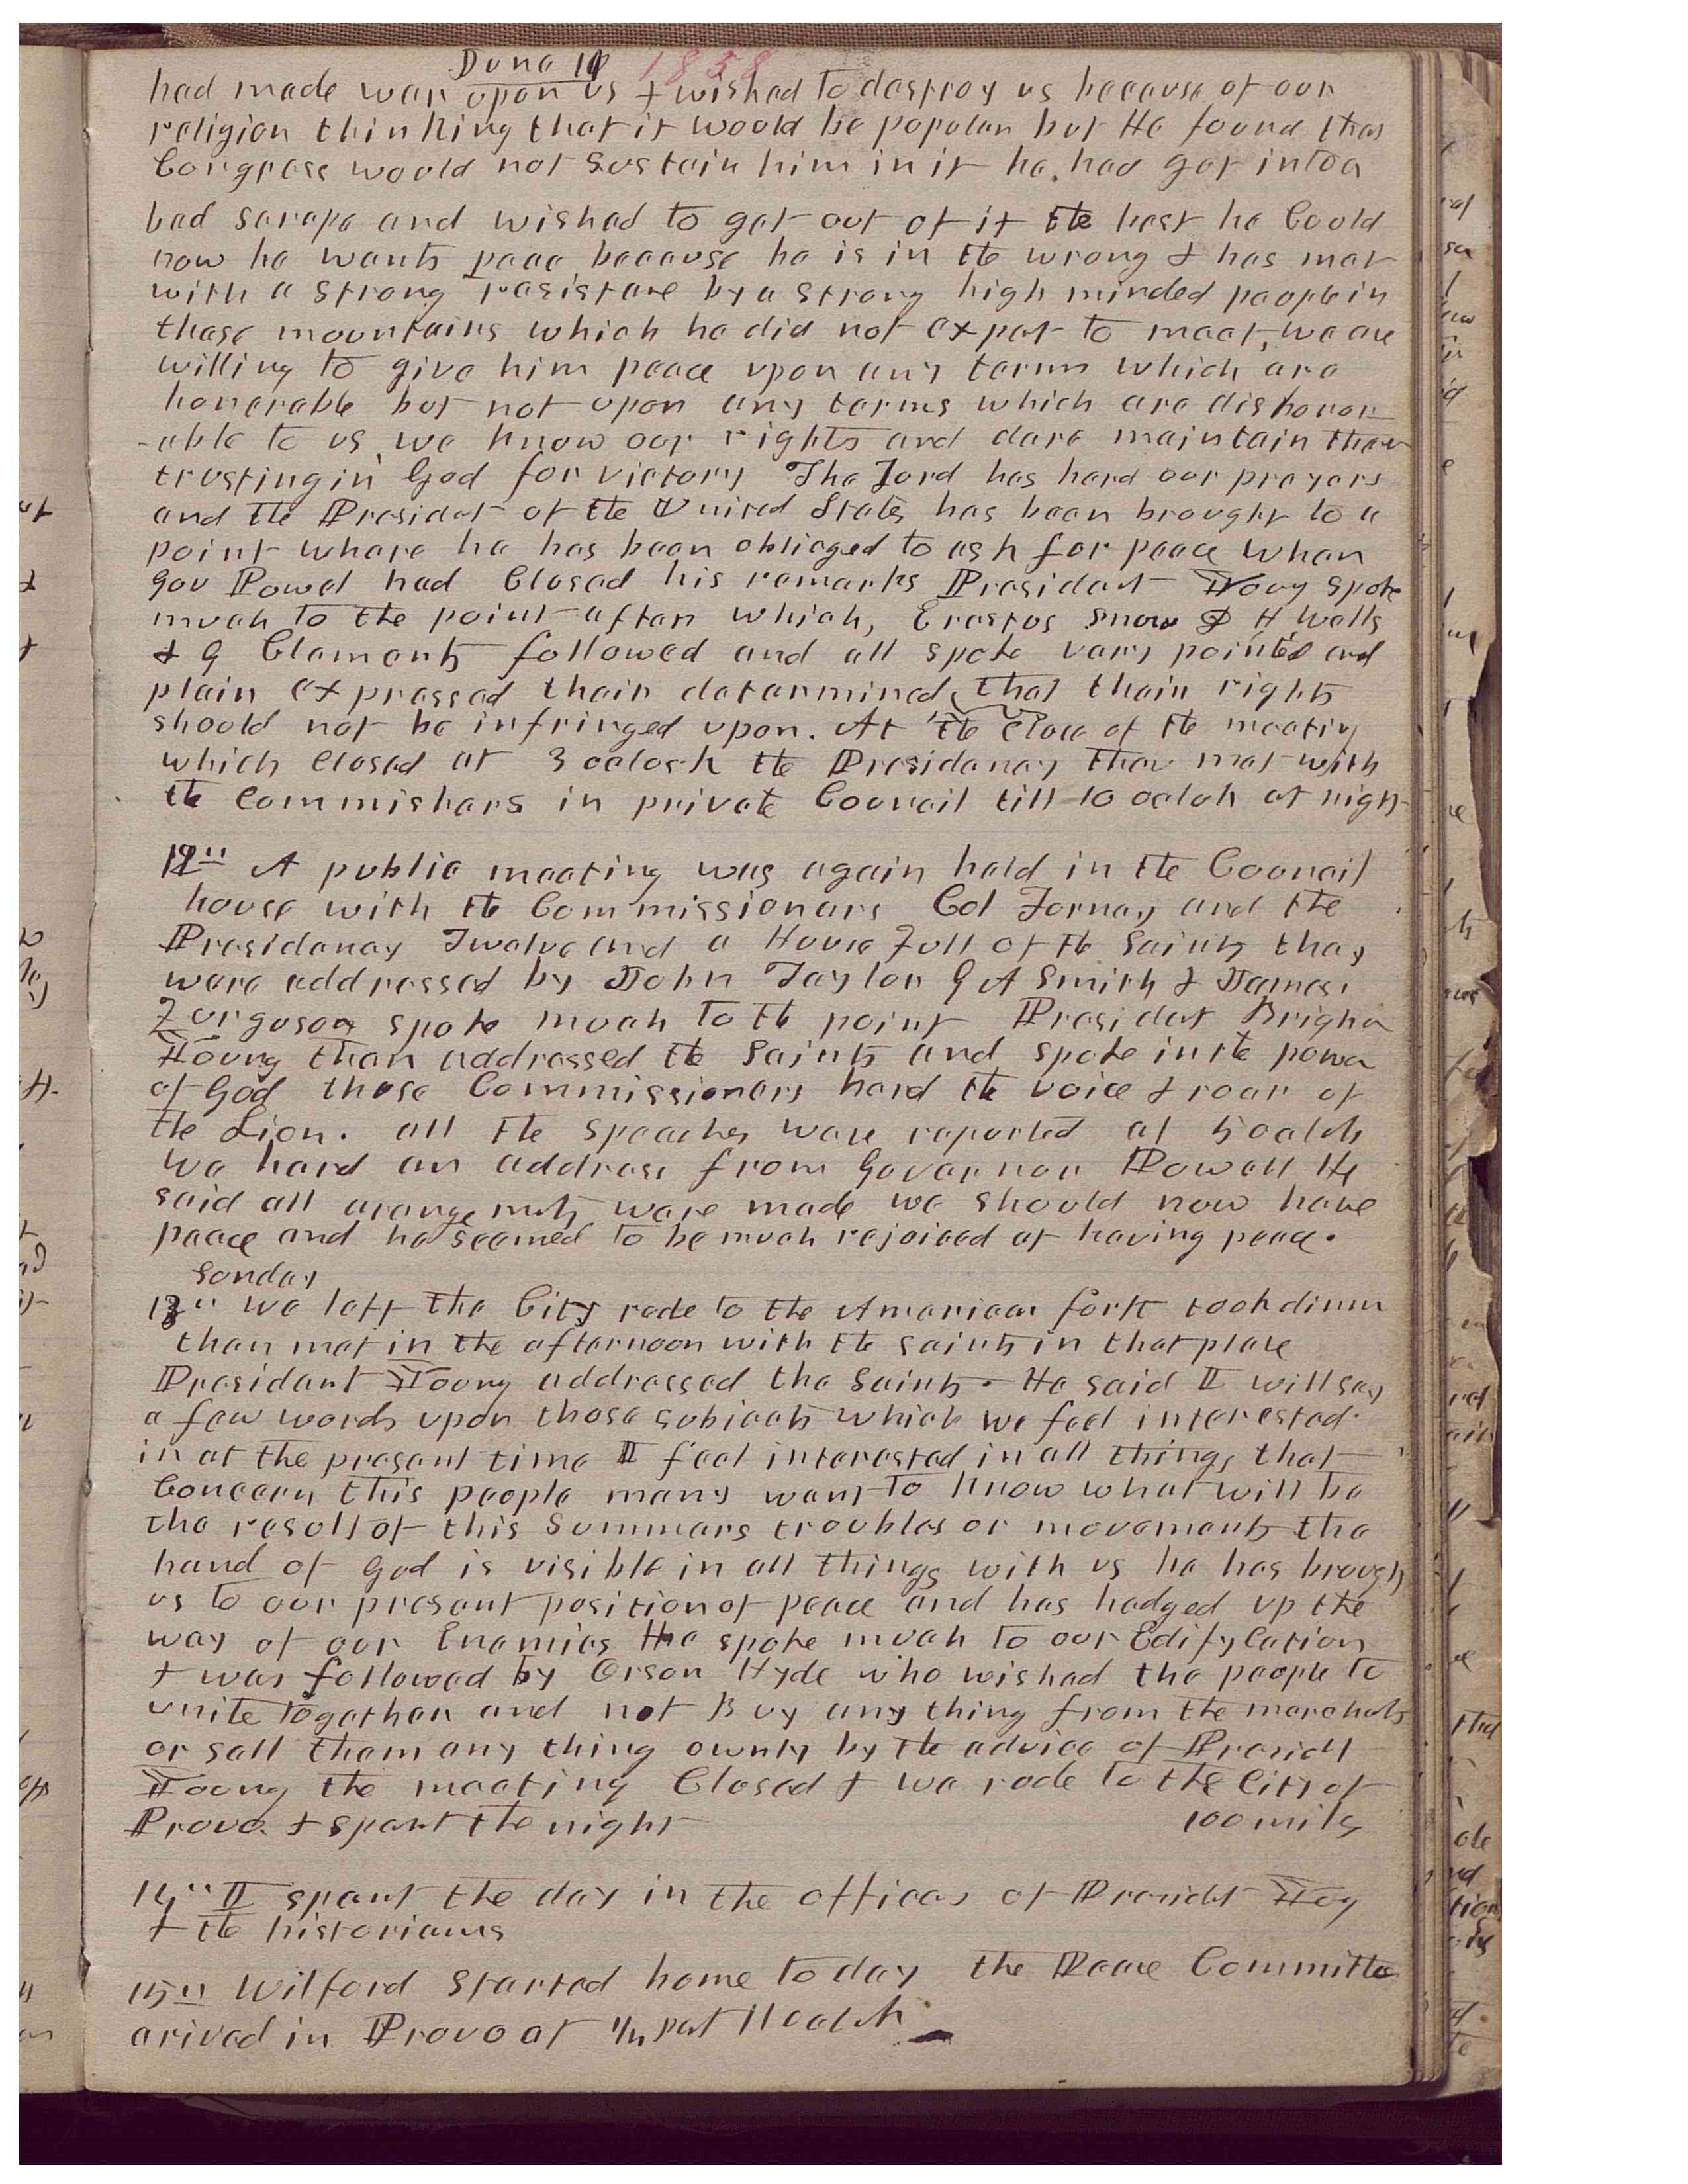 June 11 1858
had made war upon us & wished to destroy us because of our
religion thinking that it would be popular but He found that
Congress would not sustain him in it he had got into a
bad scrape and wished to get out of it the best he Could
now he wants peace because he is in the wrong & has met
with a strong resistance by a strong high minded people in
these mountains which he did not expet to meet, we are
willing to give him peace upon any terms which are
honorable but not upon any terms which are dishonor
-able to us, we know our rights and dare maintain them
trusting in God for victory The Lord has herd our prayers
and the Presidet of the United States has been brought to a
point where he has been oblieged to ask for peace when
Gov Powel had Closed his remarks President Young spoke
much to the point after which, Erastus Snow D H Wells
& G Clements followed and all spoke very pointed and
plain expressed their determined, that their rights
should not be infringed upon. At the close of the meeting
which closed at 3 oclock the Presidency then met with
the commishers in private Council till 10 oclok at night
12" A public meeting was again held in the Council
house with the Commissioners Col Forney and the
Presidency Twelve and a House Full of the Saints they
were addressed by John Taylor G A Smith & James
Furguson spoke much to the point Presidet Brigham
Young then addressed the Saints and spoke in the power
of God those Commissioners herd the voice & roar of
the Lion. all the speaches were reported at 5 oclok
we herd an address from Governor Powell He
said all arangemets were made we should now have
peace and he seemed to be much rejoiced at having peace.
Sunday
13" we left the City rode to the American fork took dinner
then met in the afternoon with the saints in that place
President Young addressed the Saints. He said I will say
a few words upon those subjects which we feel interested
in at the present time I feel interested in all things that
Concern this people many want to know what will be
the result of this Summers troubles or movements the
hand of God is visible in all things with us he has brought
us to our present position of peace and has hedged up the
way of our Enemies He spoke much to our Edifycation
& was followed by Orson Hyde who wished the people to
unite together and not Buy any thing from the merchets
or sell them any thing ownly by the advice of Presidt
Young the meeting Closed & we rode to the City of
Provo & spent the night 100 mils
14" I spent the day in the offices of Presidet Yog
& the historians
15" Wilford started home to day the Peace Committee
arived in Provo at 1/2 pat 11 oclok